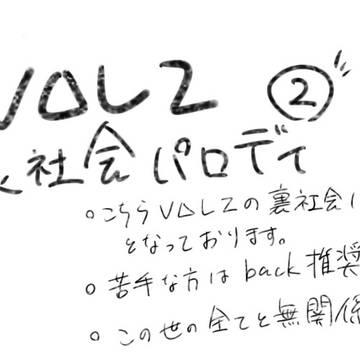 VΔLZ ②
社会パロディ
。こちらVΔLZの裏社会
となっております。
。苦手な方はback推奨
。この世の全てと無関係